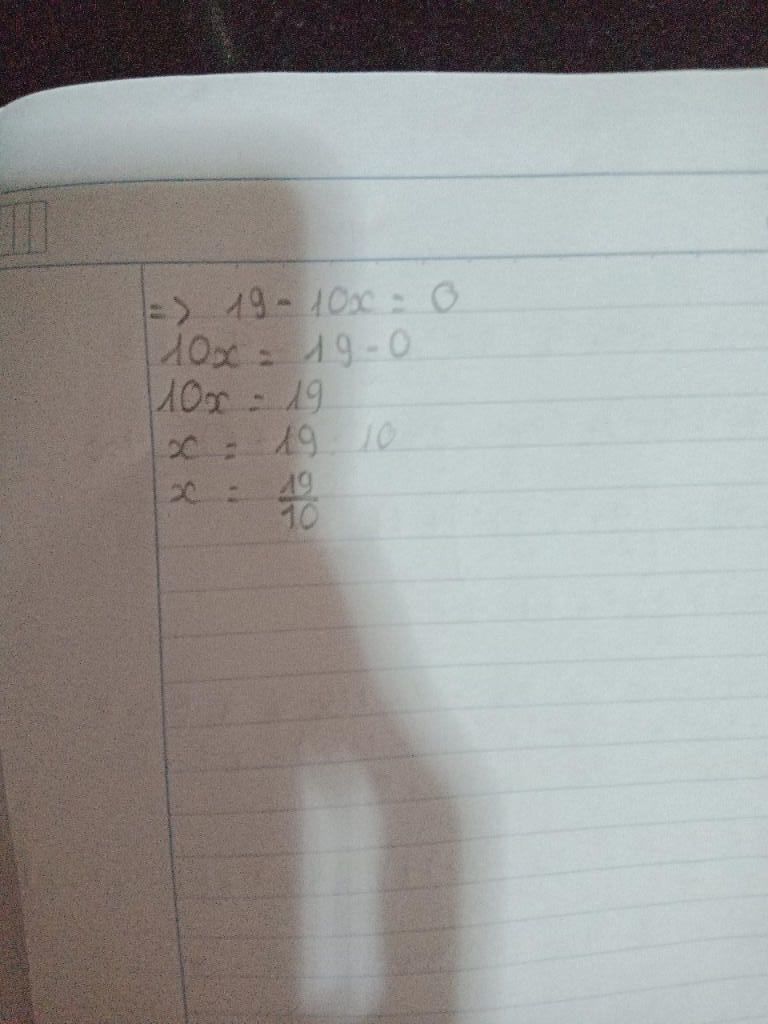 => 19 - 10x = 0
10x = 19 - 0
10x = 19
x = 19 : 10
x = 19/10